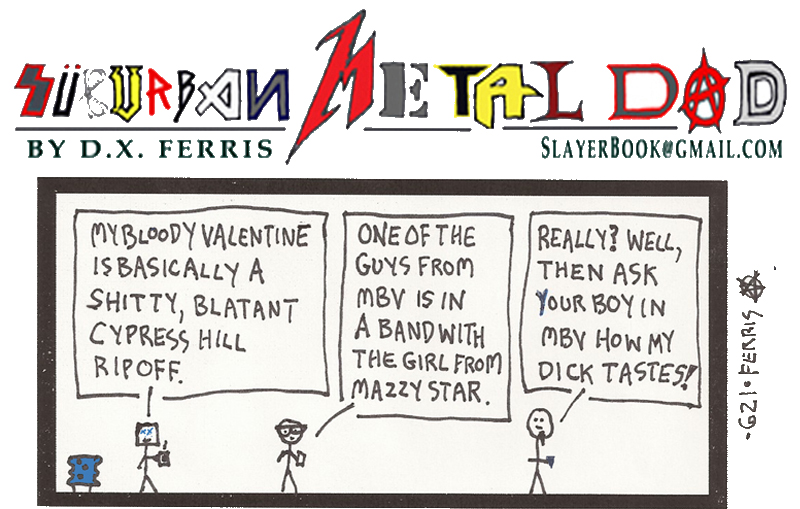 SÜBURBAN METAL DAD
BY D.X. FERRIS
SLAYERBOOK@GMAIL.COM
MY BLOODY VALENTINE
IS BASICALLY A
SHITTY, BLATANT
CYPRESS HILL
RIPOFF.
ONE OF THE
GUYS FROM
MBV IS IN
A BAND WITH
THE GIRL FROM
MAZZY STAR.
REALLY? WELL,
THEN ASK
YOUR BOY IN
MBV HOW MY
DICK TASTES!
-621• FERRIS